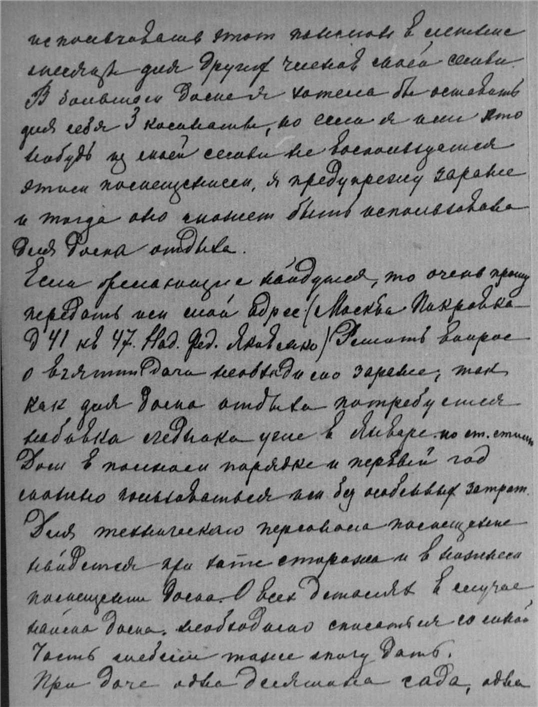 использовать этот пансион в течение
месяца для других членов своей семьи.
В большом доме я хотела бы оставить
для себя 3 комнаты, но если я или кто
нибудь из моей семьи не воспользуется
этим помещением, я предупрежу заранее
и тогда оно сможет быть использовано
для дома отдыха.
Если желающие найдутся, то очень прошу
передать им мой адрес (Москва Покровка
д 41 кв 47. Над. Фед. Яковенко) Решать вопрос
о взятии дачи необходимо заранее, так
как для дома отдыха потребуется
набивка ледника уже в Январе по ст. стилю
Дом в полном порядке и первый год
можно пользоваться им без особенных затрат.
Для технического персонала помещение
найдется при хате сторожа и в нижнем
помещении дома. О всех деталях в случае
найма дома, необходимо списаться со мной
Часть мебели также могу дать.
При даче одна десятина сада, одна